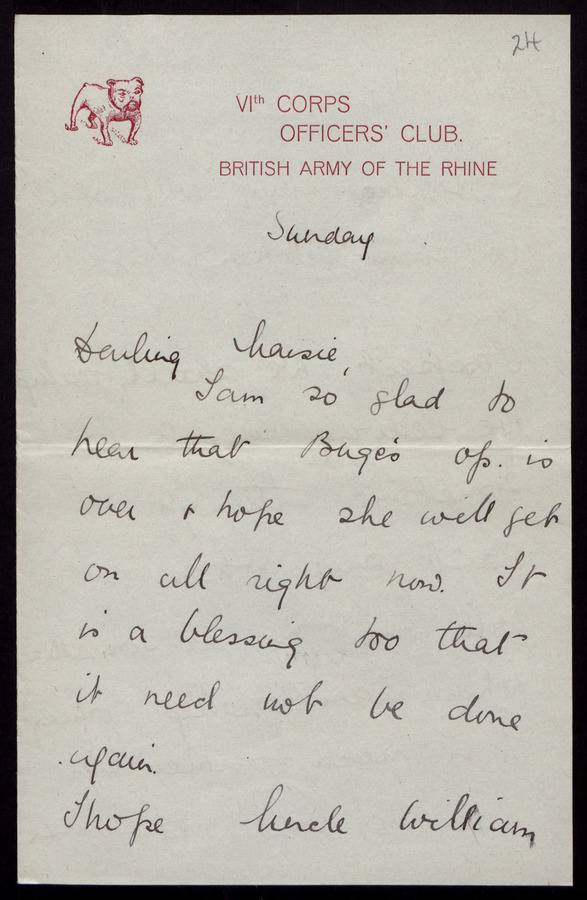 24
VIth CORPS
OFFICERS' CLUB.
BRITISH ARMY OF THE RHINE
Sunday
Darling Maisie,
I am so glad to
hear that op. is
over & hope she will get
on all right now. It
is a blessing too that
it need not be done
again.
I hope Uncle William